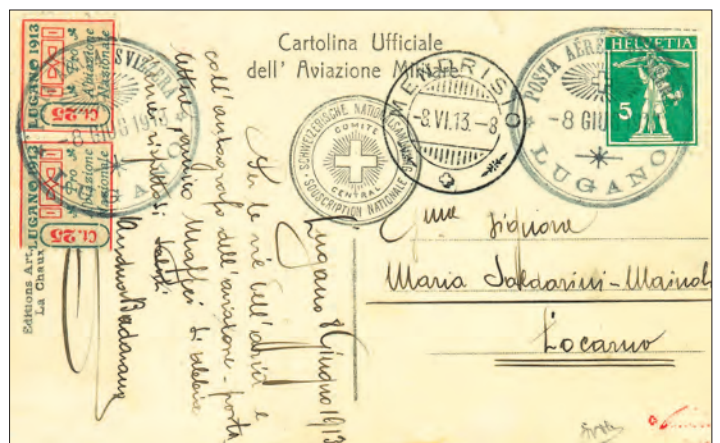 Cartolina Ufficiale
dell' Aviazione Militare
LUGANO 1913
Pro
Aviazione
Nazionale
Ct. 25
LUGANO 1913
Pro
Aviazione
Nazionale
Ct. 25
SVIZZERA
-8 GIUG 1913
LUGANO
SCHWEIZERISCHE NATIONALSAMMLUNG
COMITÉ
CENTRAL
SOUSCRIPTION NATIONALE
MENDRISIO
-8.VI.13.-8
POSTA AÉREA
-8 GIU
LUGANO
HELVETIA
5
Editions Art.
La Chaux
Lugano 8 Giugno 1913
Per le vie dell'aria e
coll'autografo dell'aviatore-porta
lettere Maffei
Signora
Maria
Locarno